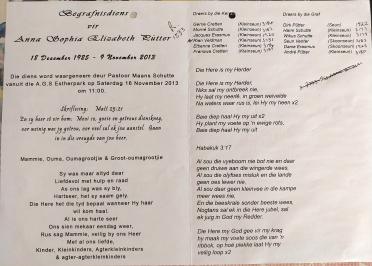 Begrafnisdiens
vir
Anna Sophia Elizabeth Pütter
18 December 1925 - 9 November 2013
Die diens word waargeneem deur Pastoor Maans Schutte
vanuit die A.G.S Estherpark op Saterdag 16 November 2013
om 11:00.
Skriflesing: Matt 25:21
En sy heer sê vir hom: Mooi so, goeie en getroue dienskneg,
oor weinig was jy getrou, oor veel sal ek jou aanstel. Gaan
in in die vreugde van jou heer.
Mammie, Ouma, Oumagrootjie & Groot-oumagrootjie
Sy was maar altyd daar
Liefdevol met hulp en raad
As ons lag was sy bly,
Hartseer, het sy saam gely.
Die Here het die tyd bepaal wanneer Hy haar
wil kom haal.
Al is ons harte seer
Ons sien mekaar eendag weer,
Rus sag Mammie, veilig by ons Heer
Met al ons liefde,
Kinder, Kleinkinders, Agterkleinkinders
& agter-agterkleinkinders
Draers by die
Gerrie Cretten (Kleinseun)
Morné Schutte (Kleinseun)
Jacques Erasmus (Kleinseun)
Allan Veldman (Kleinseun)
Etienne Cretten (Kleinseun)
Francois Cretten (Kleinseun)
Draers by die Graf
Dirk Pütter (Seun)
Henri Schutte (Kleinseun)
Wikus Schutte (Kleinseun)
Seun Venter (Kleinseun)
Danie Erasmus (Skoonseun)
André Pütter (Kleinseun)
Die Here is my Herder
Die Here is my Herder,
Niks sal my ontbreek nie,
Hy laat my neerlê, in groen weivelde
Na waters waar rus is, lei Hy my heen x2
Baie diep haal Hy my uit x2
Hy plant my voete op 'n ewige rots,
Baie diep haal Hy my uit
Habakuk 3:17
Al sou die vyeboom nie bot nie en daar
geen druiwe aan die wingerde wees,
Al sou die olyfoes misluk en die lande
geen oes lewer nie,
Al sou daar geen kleinvee in die kampe
meer wees nie,
En die beeskrale sonder beeste wees,
Nogtans sal ek in die Here jubel, sal
ek juig in God my Redder.
Die Here my God gee vir my krag
Hy maak my voete soos dié van 'n
ribbok, op hoë plekke laat Hy my
veilig loop x2